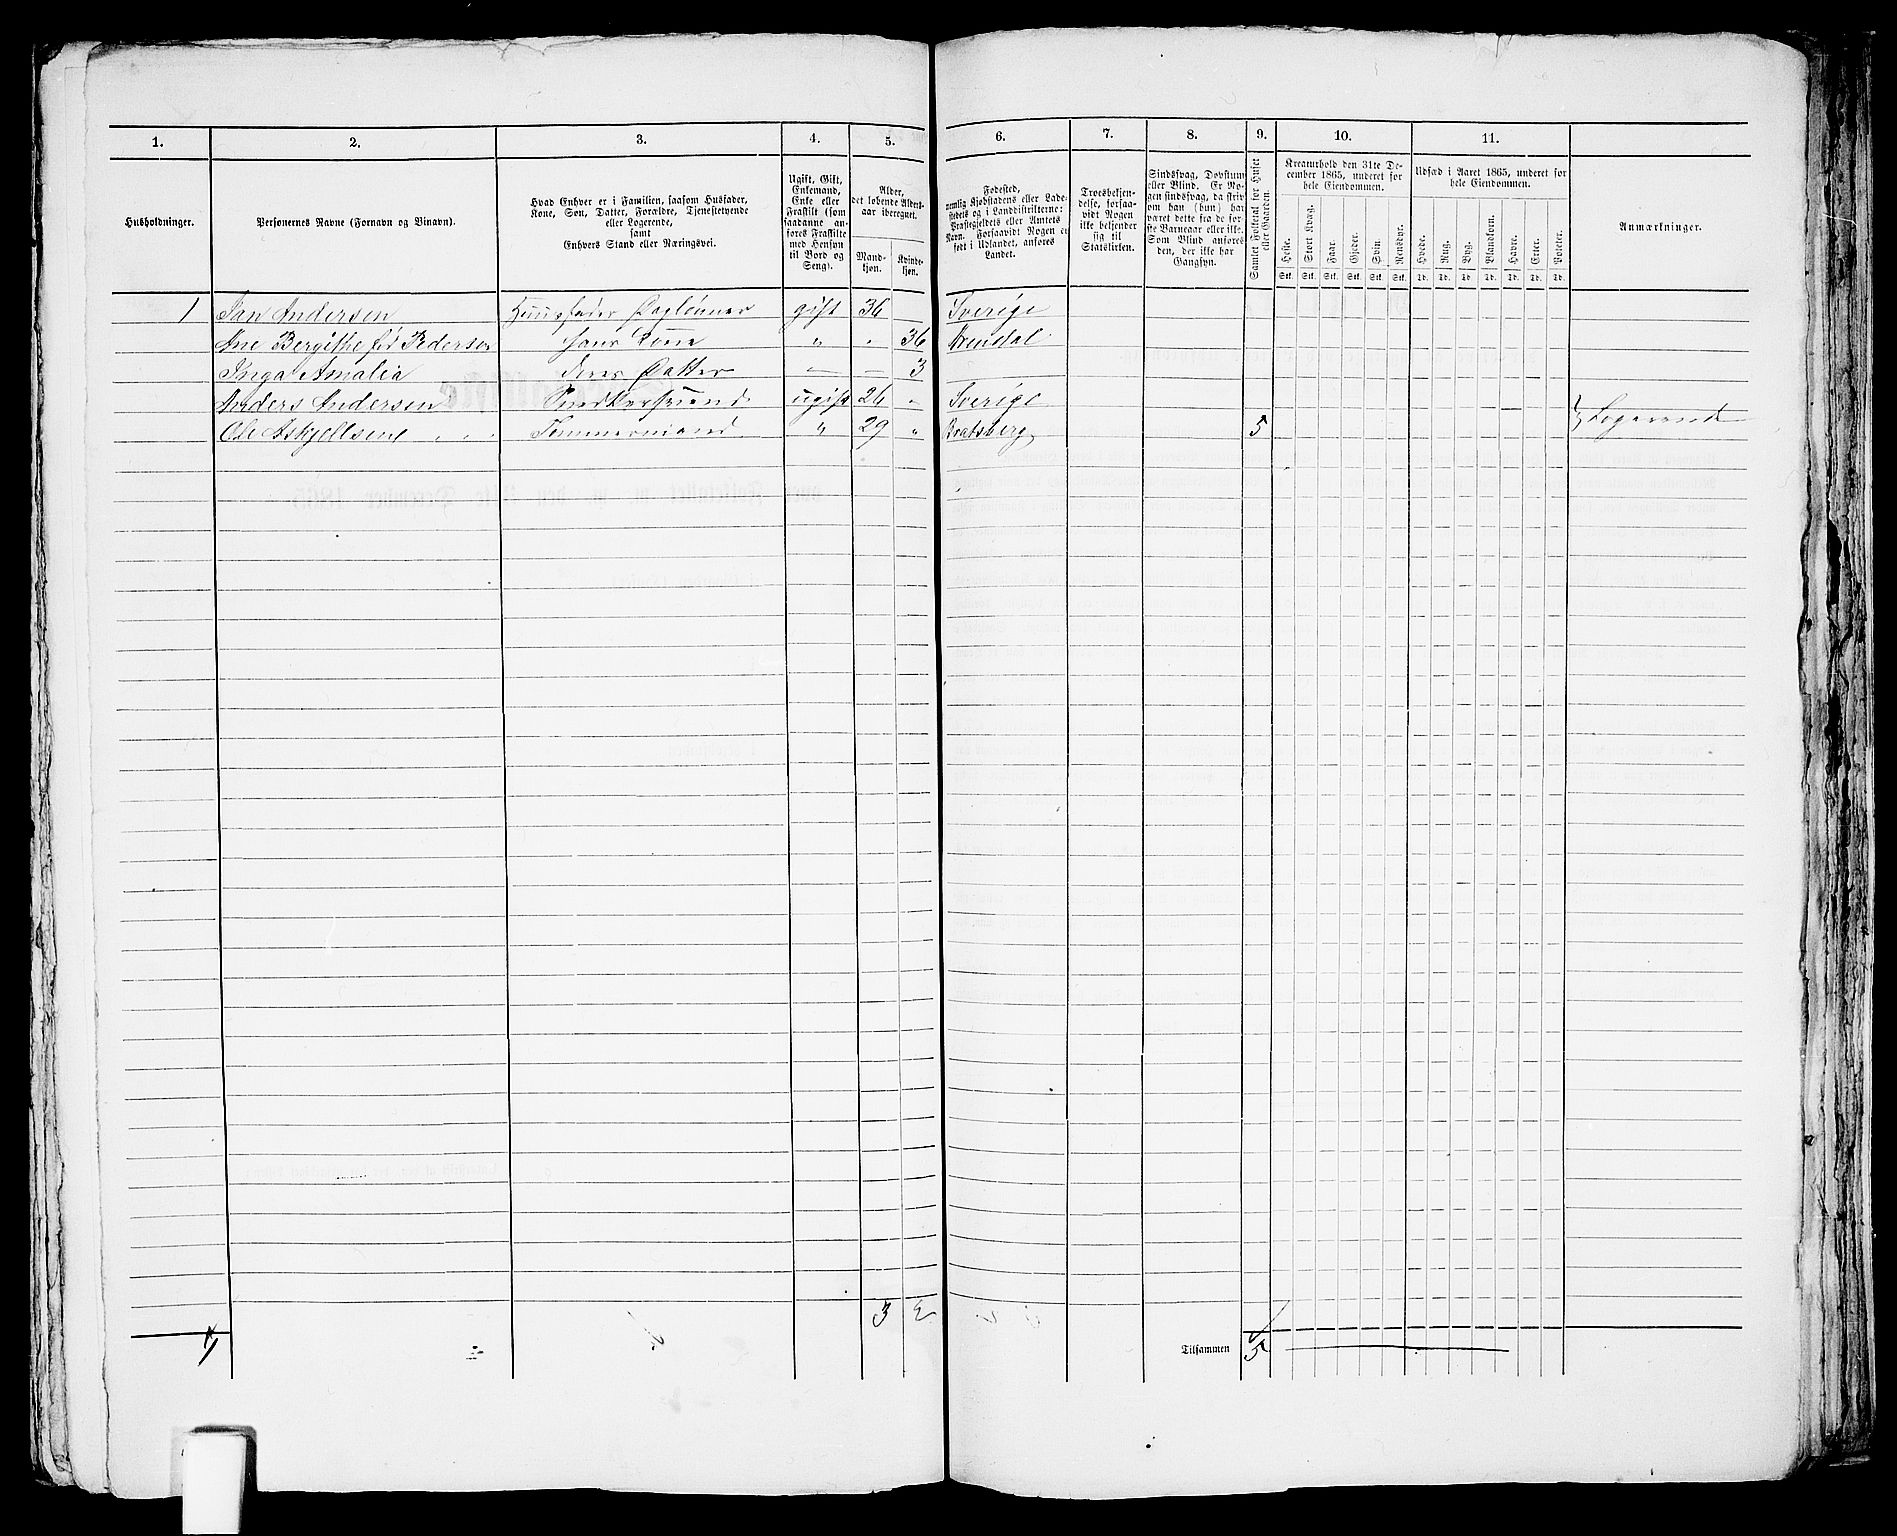 1. 2. 3. 4. 5. 6. 7. 8. 9. 10. 11.
Husholdninger.
Personernes Navne (Fornavn og Binavn).
Hvad Enhver er i Familien, saasom Husfader,
Kone, Søn, Datter, Forældre, Tjenestetyende
eller Logerende,
samt
Enhvers Stand eller Næringsvei.
Ugift, Gift,
Enkemand,
Enke eller
Fraskilt (som
saadanne an-
føres Fraskilte
med Hensyn
til Bord og
Seng).
Alder,
det løbende Alders-
aar iberegnet.
Mand-
kjøn.
Kvinde-
kjøn.
Fødested,
nemlig Kjøbstadens eller Lade-
stedets og i Landdistrikterne:
Præstegjeldets eller Amtets
Navn. Forsaavidt Nogen er
født i Udlandet, anføres
Landet.
Troesbekjen-
delse, forsaa-
vidt Nogen
ikke bekjender
sig til
Statskirken.
Sindssvag, Døvstum
eller Blind. Er No-
gen sindssvag, da skriv
om han (hun) har
været dette fra de før-
ste Barneaar eller ikke.
Som Blind anføres
den, der ikke har
Gangsyn.
Samlet Folketal for Huset
eller Gaarden.
Kreaturhold den 31te De-
cember 1865, underet for
hele Eiendommen.
Heste. Stort Kvæg. Faar. Gjeder. Svin. Rensdyr.
Stk. Stk. Stk. Stk. Stk. Stk.
Udsæd i Aaret 1865, underet for
hele Eiendommen.
Hvede. Rug. Byg. Blandkorn. Havre. Erter. Poteter.
Td. Td. Td. Td. Td. Td. Td.
Anmærkninger.
1 Jan Andersen Huusfader Daglønner gift 36 Sverige
Ane Bergithe fød Pedersen hans Kone " " 36 Arendal
Inga Amalia deres Datter — — 3
Anders Andersen Snedkersvend ugift 26 " Sverige
Ole Askjellsen Tømmermand " 29 " Bratsberg 5 } Logerende
3 2
1 Tilsammen 5